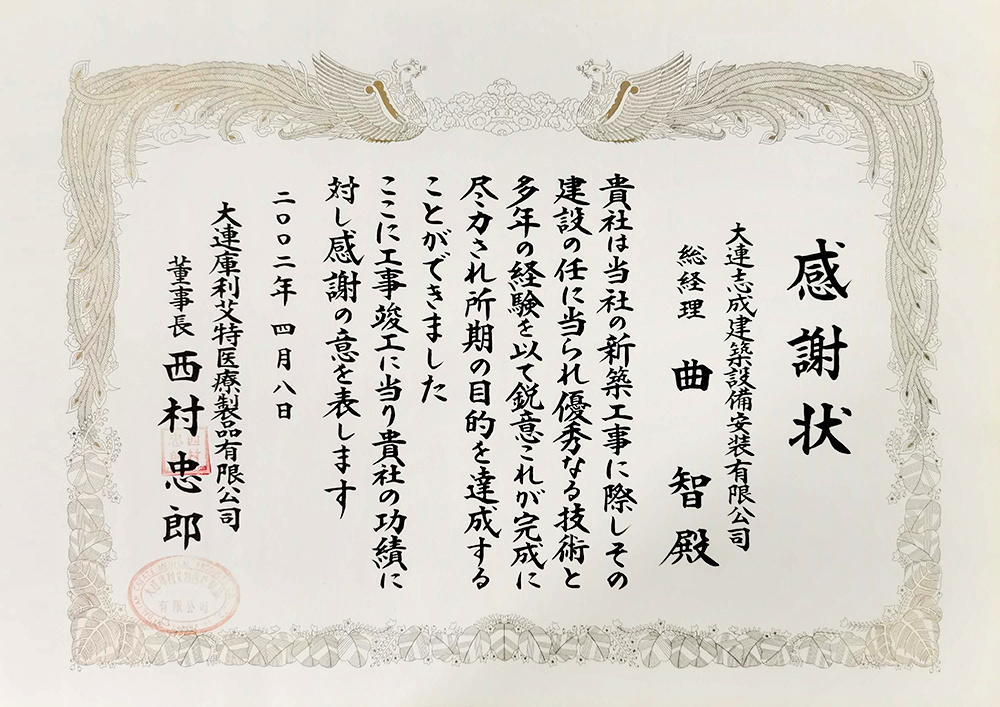 感謝状
大連志成建築設備安装有限公司
総経理 曲 智殿
貴社は当社の新築工事に際しその
建設の任に当られ優秀なる技術と
多年の経験を以て鋭意これが完成に
尽力され所期の目的を達成する
ことができました
ここに工事竣工に当り貴社の功績に
対し感謝の意を表します
二００二年 四月八日
大連庫利艾特医療製品有限公司
董事長 西村忠郎
有限公司